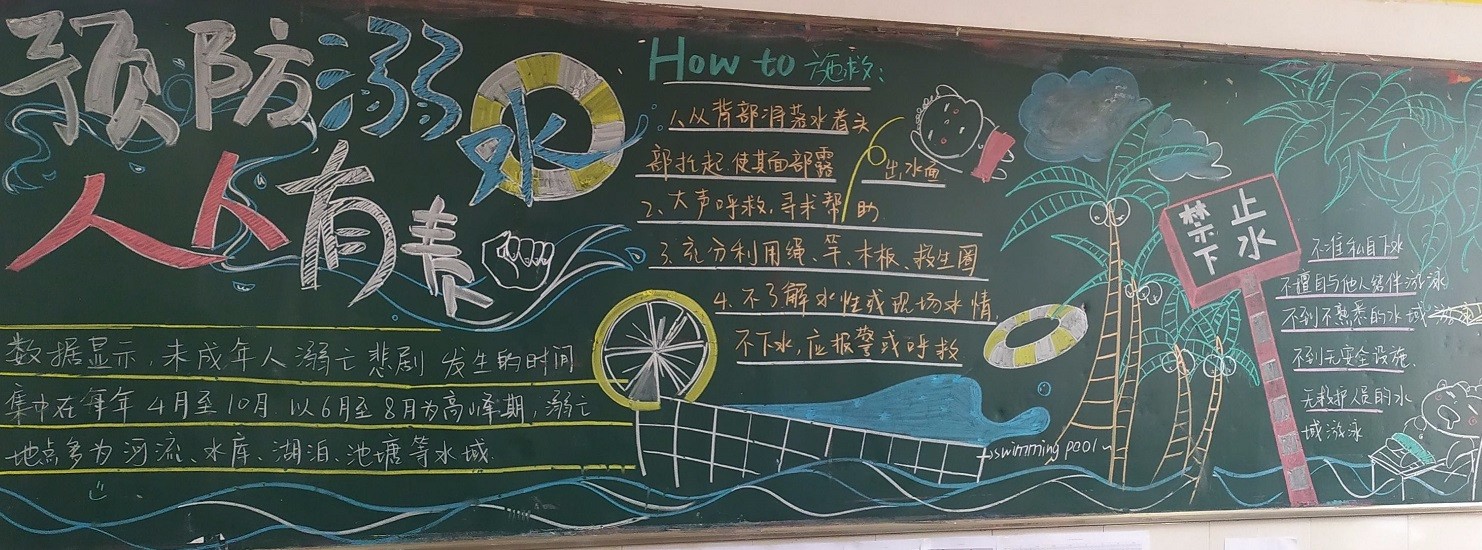 预防溺水
人人有责
数据显示,未成年人溺亡悲剧发生的时间
集中在每年4月至10月.以6月至8月为高峰期,溺亡
地点多为河流、水库、湖泊、池塘等水域.
How to 施救:
1、从背部将落水者头
部托起,使其面部露出水面
2、大声呼救,寻求帮助.
3、充分利用绳、竿、木板、救生圈
4、不了解水性或现场水情,
不下水,应报警或呼救
swimming pool
禁止
下水
不准私自下水
不擅自与他人结伴游泳
不到不熟悉的水域游泳
不到无安全设施、
无救护人员的水
域游泳